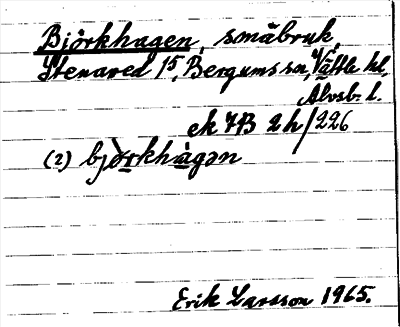 Björkhagen, småbruk,
Stenared 1⁵, Bergums sn, Vättle hd,
Älvsb. l.
ek 7B 2h/226
(2) bjòrkhàgən
Erik Larsson 1965.